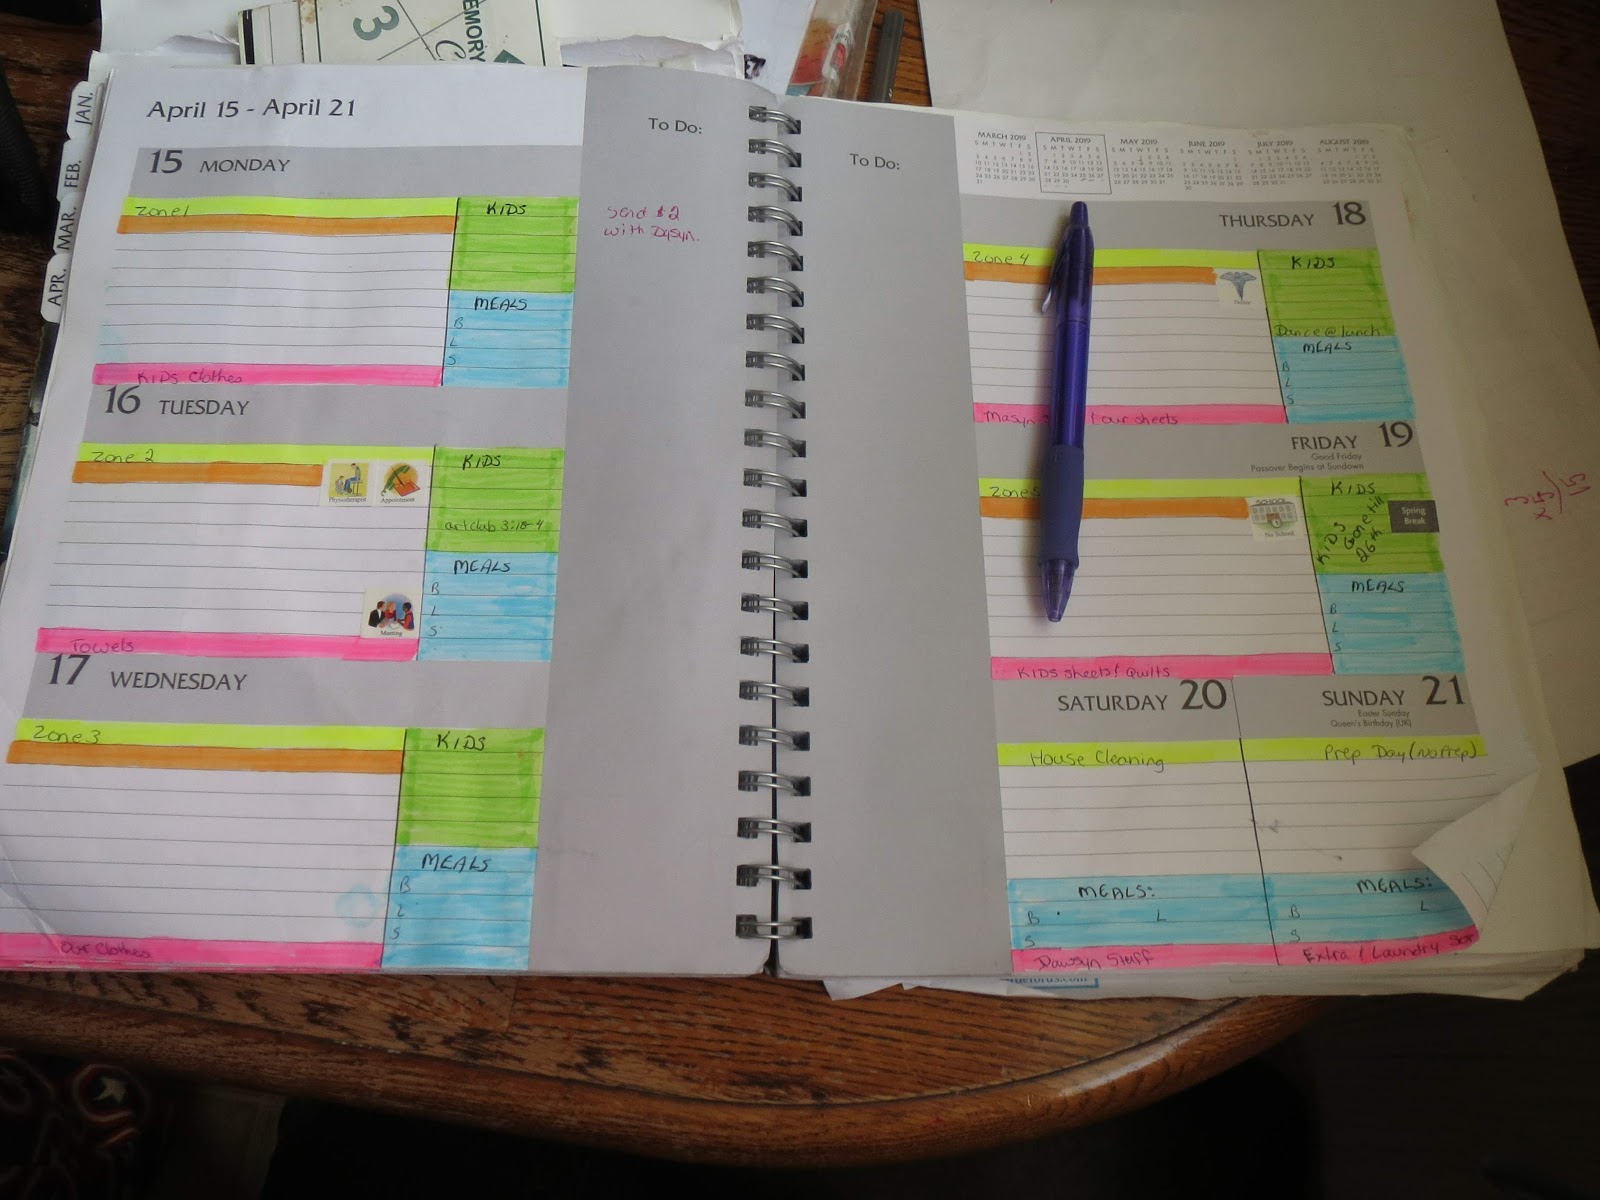 3
EMORY
JAN.
FEB.
MAR.
APR.
April 15 - April 21
To Do:
15 MONDAY
Zone 1
KIDS
MEALS
B
L
S
KIDS Clothes
Send $2
with Dasyn.
16 TUESDAY
Zone 2
Physiotherapist
Appointment
KIDS
artclub 3:10-4
MEALS
B
L
S
Meeting
Towels
17 WEDNESDAY
Zone 3
KIDS
MEALS
B
L
S
Our Clothes
To Do:
MARCH 2019
APRIL 2019
MAY 2019
JUNE 2019
JULY 2019
AUGUST 2019
THURSDAY 18
Zone 4
KIDS
Dance @ lunch
MEALS
B
L
S
Masyn
our sheets
FRIDAY 19
Good Friday
Passover Begins at Sundown
Zone 5
SCHOOL
No School
KIDS
KIDS
Gone till
26th
Spring
Break
MEALS
B
L
S
KIDS sheets/ Quilts
SATURDAY 20
House Cleaning
MEALS:
B L
S
Dawsyn Stuff
SUNDAY 21
Easter Sunday
Queen's Birthday (UK)
Prep Day (No Prep)
MEALS:
B L
S
Extra / Laundry